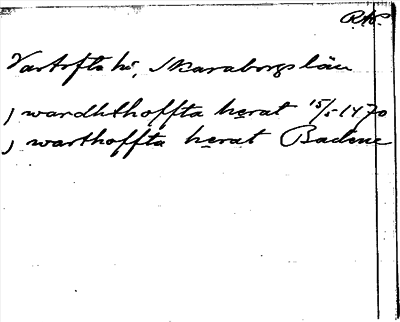 R.A.P.
Vartofta hd, Skaraborgs län
) wardhthoffta herat 15/5 1470
) warthoffta herat Badene